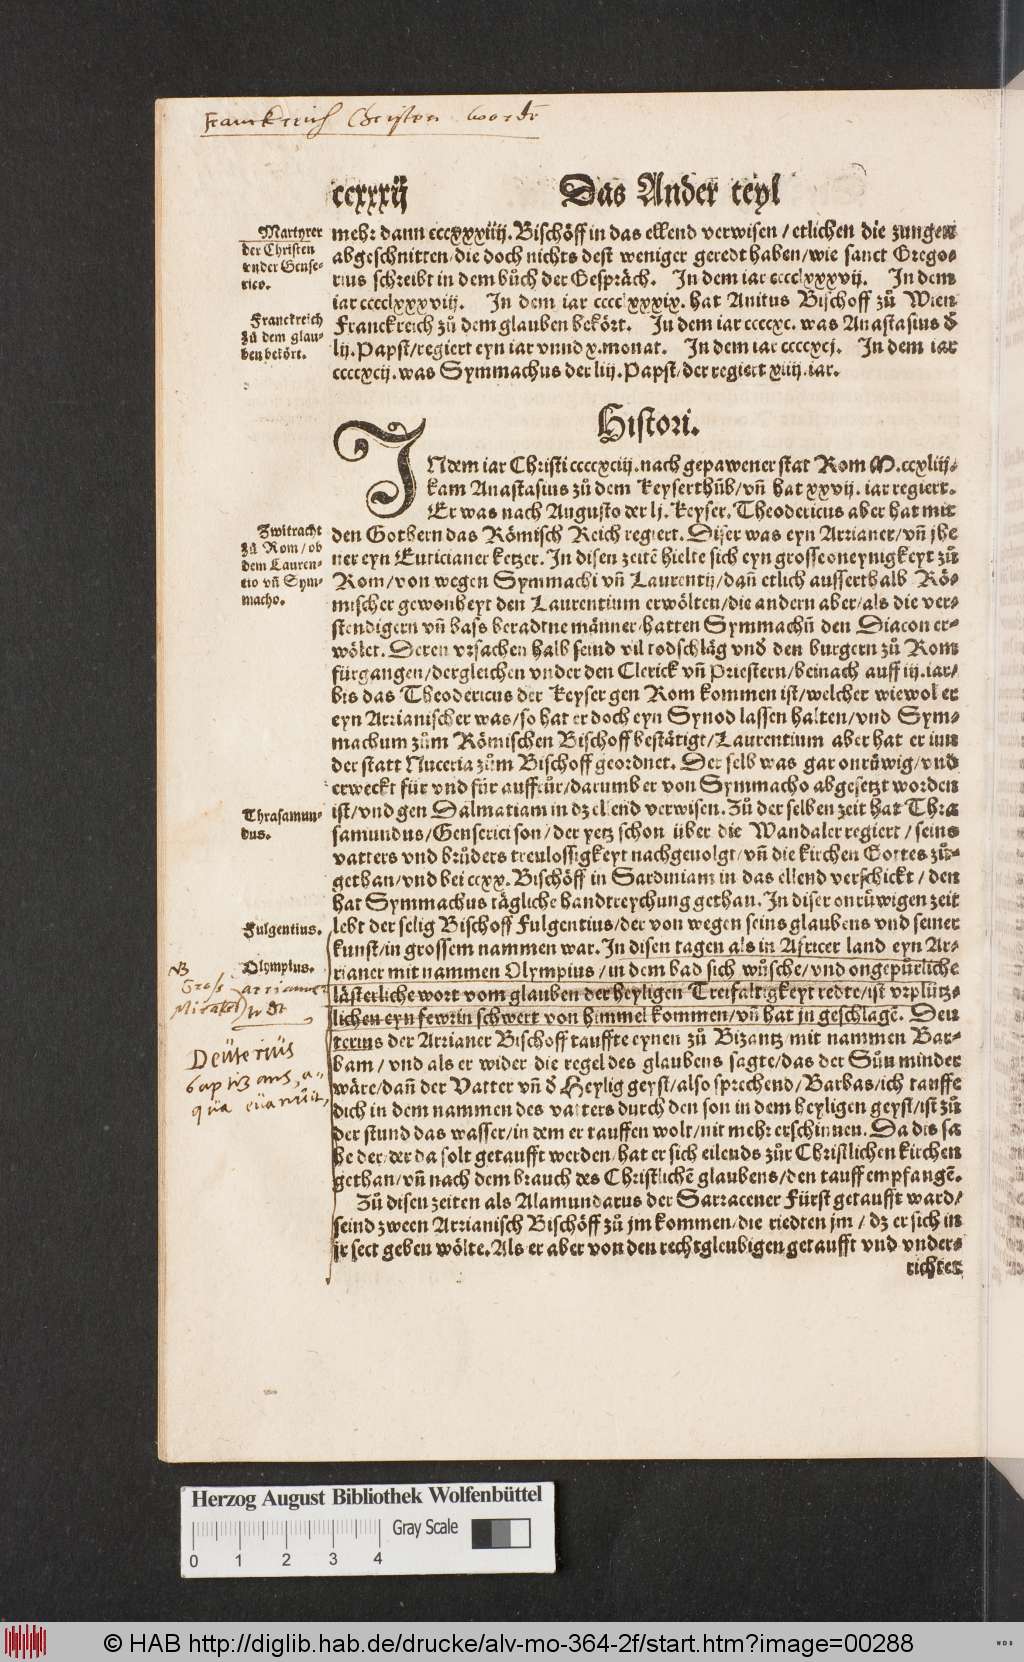 Franckreich Christen worden
ccxxxij Das Ander teyl
Martyrer
der Christen
vnder Gense-
rico.
Franckreich
zů dem glau-
ben bekört.
mehr dann cccxxxiiij. Bischöff in das ellend verwisen / etlichen die zungen
abgeschnitten / die doch nichts dest weniger geredt haben / wie sanct Grego-
rius schreibt in dem bůch der Gespräch. In dem iar cccclxxxvij. In dem
iar cccclxxxviij. In dem iar cccclxxxix. hat Anitus Bischoff zů Wien
Franckreich zů dem glauben bekört. In dem iar ccccxc. was Anastasius ð
lij. Papst / regiert eyn iar vnnd x. monat. In dem iar ccccxcj. In dem iar
ccccxcij. was Symmachus der liij. Papst / der regiert xiiij. iar.
Histori.
INdem iar Christi ccccxciij. nach gepawener stat Rom M.ccxliij.
kam Anastasius zů dem Keyserthůb / vñ hat xxvij. iar regiert.
Er was nach Augusto der lj. Keyser. Theodericus aber hat mit
den Gothern das Römisch Reich regiert. Diser was eyn Arrianer / vñ jhe
ner eyn Euticianer ketzer. In disen zeitē hielte sich eyn grosse oneynigkeyt zů
Rom / von wegen Symmachi vñ Laurentij / dañ etlich ausserthalb Rö-
mischer gewonheyt den Laurentium erwölten / die andern aber / als die ver-
stendigern vñ bass beradtne männer / hatten Symmachū den Diacon er-
wölet. Deren vrsachen halb seind vil todschläg vnð den burgern zů Rom
fürgangen / dergleichen vnder den Clerick vñ Priestern / beinach auff iij. iar /
bis das Theodericus der Keyser gen Rom kommen ist / welcher wiewol er
eyn Arrianischer was / so hat er doch eyn Synod lassen halten / vnd Sym-
machum zům Römischen Bischoff bestätigt / Laurentium aber hat er inn
der statt Nuceria zům Bischoff geordnet. Der selb was gar onrüwig / vnd
erweckt für vnd für auffrůr / darumb er von Symmacho abgesetzt worden
ist / vnd gen Dalmatiam in dz ellend verwisen. Zů der selben zeit hat Thra
samundus / Genserici son / der yetz schon über die Wandaler regiert / seins
vatters vnd brůders treulossigkeyt nachgeuolgt / vñ die kirchen Gottes zů-
gethan / vnd bei ccxx. Bischöff in Sardiniam in das ellend verschickt / den
hat Symmachus tägliche handtreychung gethan. In diser onrüwigen zeit
lebt der selig Bischoff Fulgentius / der von wegen seins glaubens vnd seiner
kunst / in grossem nammen war. In disen tagen als in Africer land eyn Ar-
rianer mit nammen Olympius / in dem bad sich wůsche / vnd ongepürliche
lästerliche wort vom glauben der heyligen Treifaltigkeyt redte / ist vrplütz-
lichen eyn fewrin schwert von himmel kommen / vñ hat jn geschlagē. Deu
terius der Arrianer Bischoff tauffte eynen zů Bizantz mit nammen Bar-
bam / vnd als er wider die regel des glaubens sagte / das der Sůn minder
wäre / dañ der Vatter vñ ð Heylig geyst / also sprechend / Barbas / ich tauffe
dich in dem nammen des vatters durch den son in dem heyligen geyst / ist zů
der stund das wasser / in dem er tauffen wolt / nit mehr erschinnen. Da dis sa
he der / der da solt getaufft werden / hat er sich eilends zůr Christlichen kirchen
gethan / vñ nach dem brauch des Christlichē glaubens / den tauff empfangē.
Zů disen zeiten als Alamundarus der Sarracener Fürst getaufft ward /
seind zween Arrianisch Bischöff zů jm kommen / die riedten jm / dz er sich in
jr sect geben wölte. Als er aber von den rechtgleubigen getaufft vnd vnder-
richtet
Zwitracht
zů Rom / ob
dem Lauren-
tio vñ Sym-
macho.
Thrasamun-
dus.
Fulgentius.
Olympius.
NB
Gross arrianer
Mirakel
Deüterius
baptizans, a-
qüa eüanüit,
Herzog August Bibliothek Wolfenbüttel
Gray Scale
0 1 2 3 4
© HAB http://diglib.hab.de/drucke/alv-mo-364-2f/start.htm?image=00288